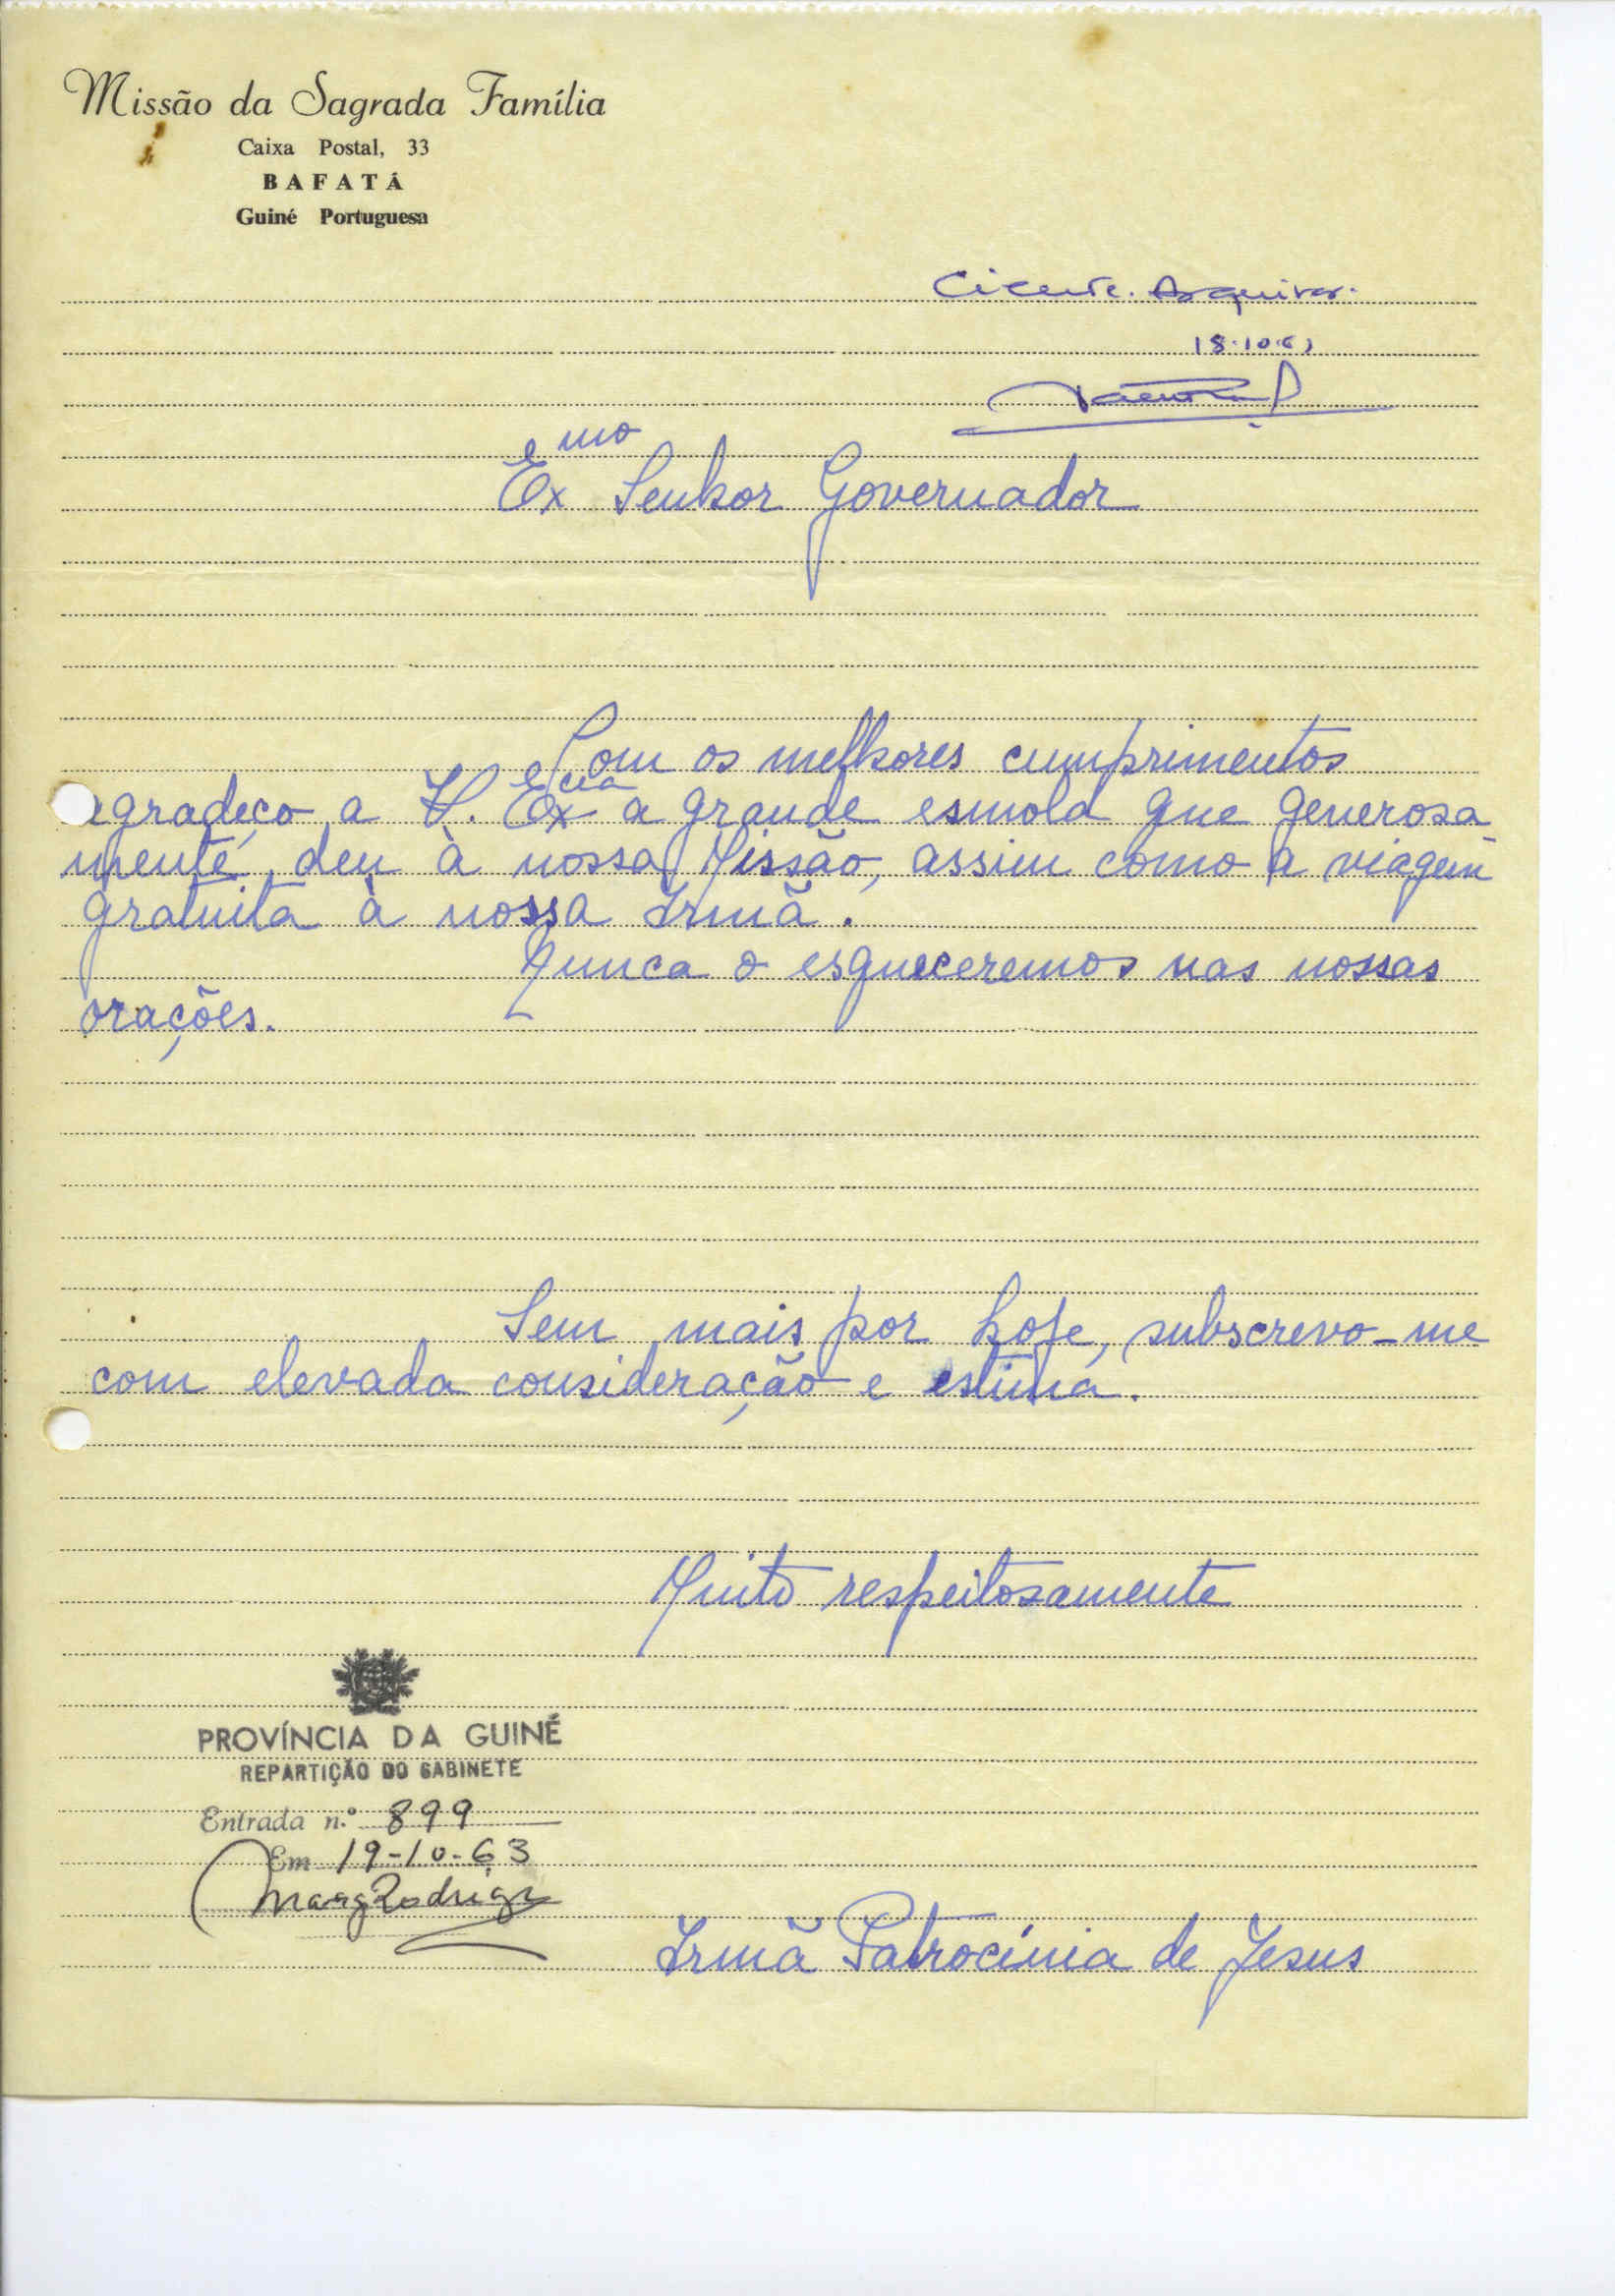 Missão da Sagrada Família
Caixa Postal, 33
BAFATÁ
Guiné Portuguesa
Ciente. Arquivar.
18.10.63
Exmo Senhor Governador
Com os melhores cumprimentos
agradeço a V. Excia a grande esmola que generosa
mente, deu à nossa Missão, assim como a viagem
gratuita à nossa Irmã.
Nunca o esqueceremos nas nossas
orações.
Sem mais por hoje, subscrevo-me
com elevada consideração e estima.
Muito respeitosamente
PROVÍNCIA DA GUINÉ
REPARTIÇÃO DO GABINETE
Entrada n.º 899
Em 19-10-63
Irmã Patrocínia de Jesus